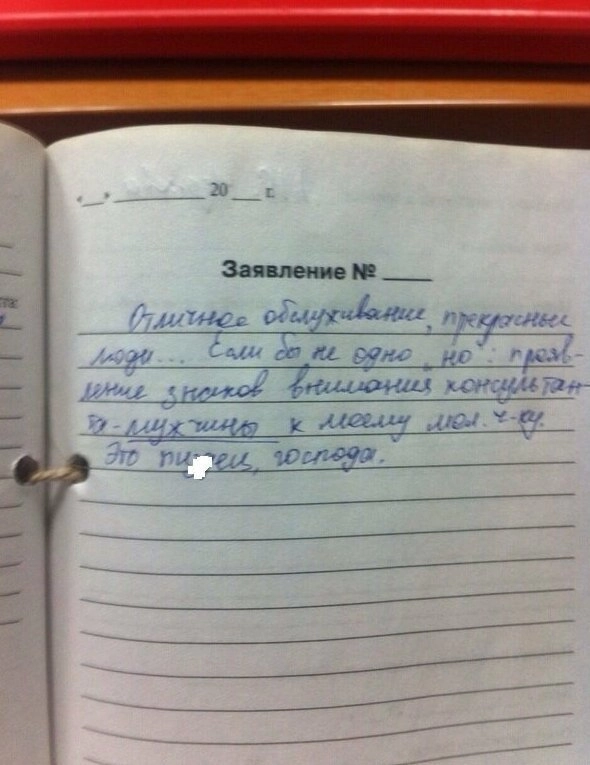 «__» ________ 20 ___ г.
Заявление № ____
Отличное обслуживание, прекрасные
люди... Если бы не одно „но“: прояв-
ление знаков внимания консультан-
та-мужчины к моему мол. ч-ку.
Это пи ец, господа.